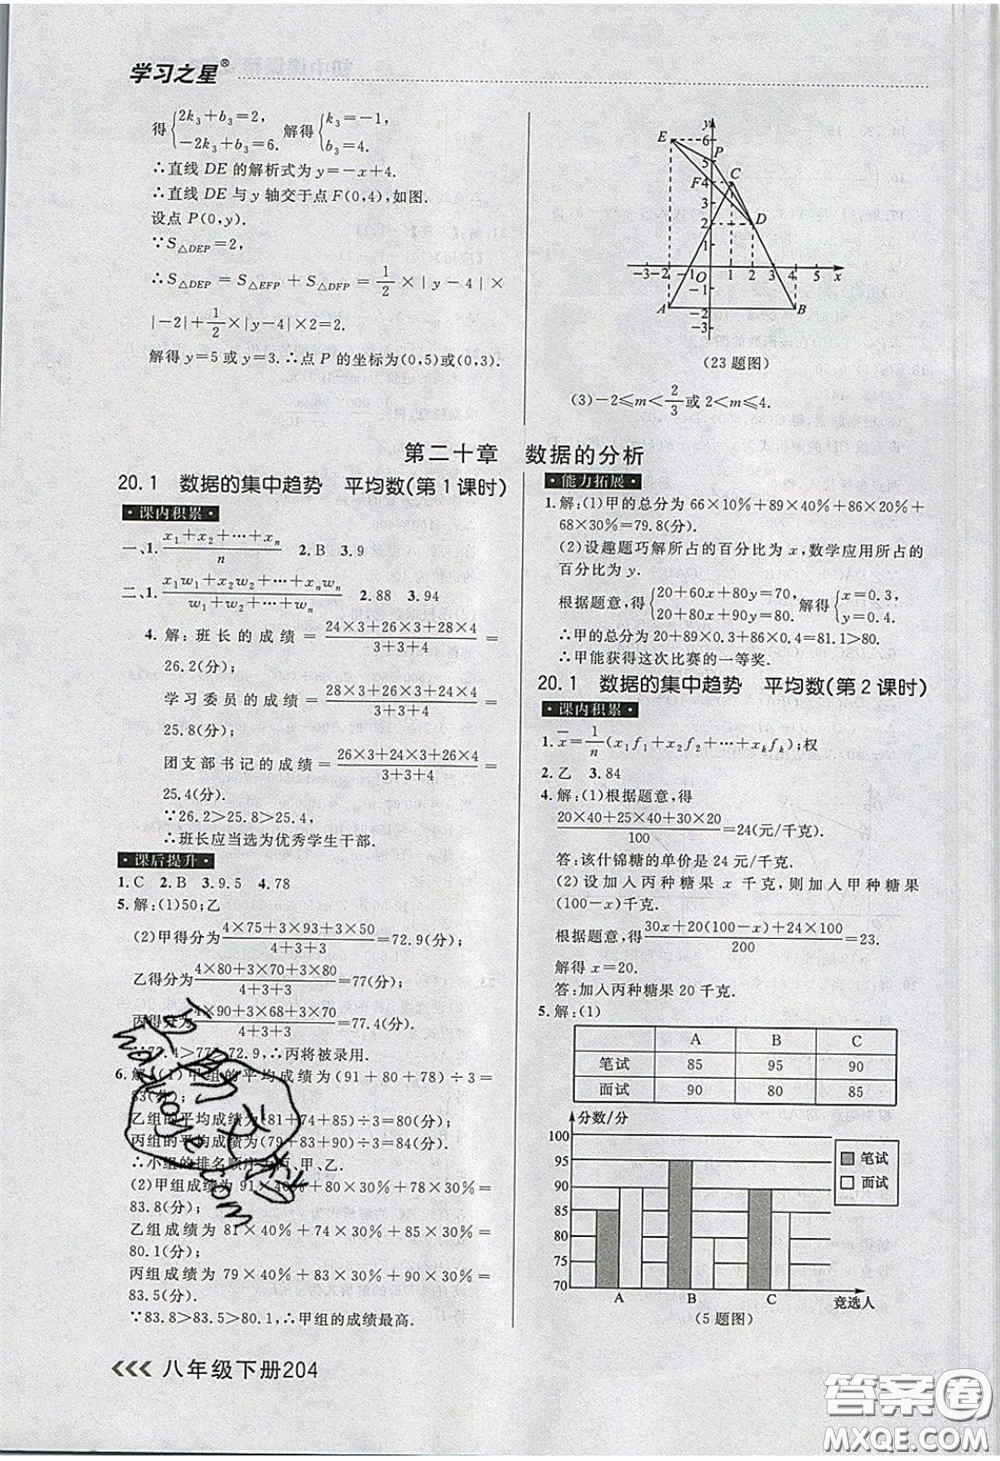 学习之星®
得{2k₃+b₃=2, −2k₃+b₃=6. 解得{k₃=−1, b₃=4.
∴直线 DE 的解析式为 y=−x+4.
∴直线 DE 与 y 轴交于点 F(0,4),如图.
设点 P(0,y).
∵S△DEP=2,
∴S△DEP=S△EFP+S△DFP=1/2×|y−4|×
|−2|+1/2×|y−4|×2=2.
解得 y=5 或 y=3. ∴点 P 的坐标为(0,5)或(0,3).
y
E 6
5 P
F 4 C
3
2 D
1
−3 −2 −1 O 1 2 3 4 5 x
−1
A −2 B
−3
(23 题图)
(3)−2≤m<2/3或 2<m≤4.
第二十章 数据的分析
20.1 数据的集中趋势 平均数(第 1 课时)
·课内积累·
一、1. (x₁+x₂+…+xₙ)/n 2. B 3. 9
二、1. (x₁w₁+x₂w₂+…+xₙwₙ)/(w₁+w₂+…+wₙ) 2. 88 3. 94
4. 解:班长的成绩=(24×3+26×3+28×4)/(3+3+4)=
26.2(分);
学习委员的成绩=(28×3+26×3+24×4)/(3+3+4)=
25.8(分);
团支部书记的成绩=(26×3+24×3+26×4)/(3+3+4)=
25.4(分).
∵26.2>25.8>25.4,
∴班长应当选为优秀学生干部.
·课后提升·
1. C 2. B 3. 9.5 4. 78
5. 解:(1)50;乙
(2)甲得分为(4×75+3×93+3×50)/(4+3+3)=72.9(分);
乙得分为(4×80+3×70+3×80)/(4+3+3)=77(分);
丙得分为(4×90+3×68+3×70)/(4+3+3)=77.4(分).
∵77.4>77>72.9,∴丙将被录用.
6. 解:(1)甲组的平均成绩为(91+80+78)÷3=
83(分);
乙组的平均成绩为(81+74+85)÷3=80(分);
丙组的平均成绩为(79+83+90)÷3=84(分).
∴小组的排名顺序为丙、甲、乙.
(2)甲组成绩为 91×40%+80×30%+78×30%=
83.8(分);
乙组成绩为 81×40%+74×30%+85×30%=
80.1(分);
丙组成绩为 79×40%+83×30%+90×30%=
83.5(分).
∵83.8>83.5>80.1,∴甲组的成绩最高.
·能力拓展·
1. 解:(1)甲的总分为 66×10%+89×40%+86×20%+
68×30%=79.8(分).
(2)设趣题巧解所占的百分比为 x,数学应用所占的
百分比为 y.
根据题意,得{20+60x+80y=70, 20+80x+90y=80. 解得{x=0.3, y=0.4.
∴甲的总分为 20+89×0.3+86×0.4=81.1>80.
∴甲能获得这次比赛的一等奖.
20.1 数据的集中趋势 平均数(第 2 课时)
·课内积累·
1. x̄=1/n(x₁f₁+x₂f₂+…+xₖfₖ);权
2. 乙 3. 84
4. 解:(1)根据题意,得
(20×40+25×40+30×20)/100=24(元/千克).
答:该什锦糖的单价是 24 元/千克.
(2)设加入丙种糖果 x 千克,则加入甲种糖果
(100−x)千克.
根据题意,得(30x+20(100−x)+24×100)/200=23.
解得 x=20.
答:加入丙种糖果 20 千克.
5. 解:(1)
A B C
笔试 85 95 90
面试 90 80 85
分数/分
100
95
90
85
80
75
70
A B C 竞选人
笔试
面试
(5 题图)
八年级下册204
hdzuoje.com
答案圈
MXQE.COM